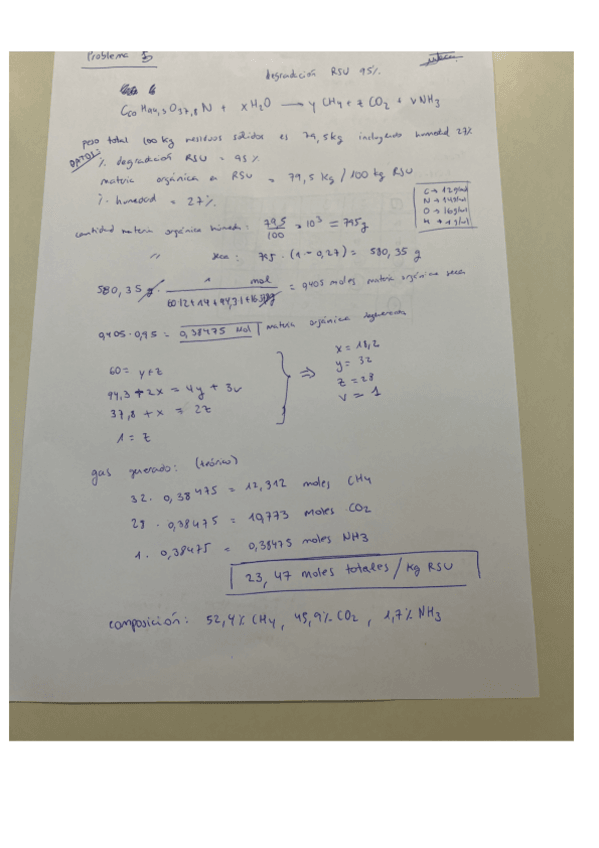 Problema 1
degradación RSU 95%
C60 H94,3 O37,8 N + x H2O → y CH4 + z CO2 + v NH3
peso total 100 kg residuos sólidos es 79,5 kg incluyendo humedad 27%
DATOS:
% degradación RSU = 95%
materia orgánica en RSU = 79,5 kg / 100 kg RSU
% humedad = 27%
C → 12 g/mol
N → 14 g/mol
O → 16 g/mol
H → 1 g/mol
cantidad materia orgánica húmeda: 79,5/100 · 10³ = 795 g
" seca: 795 · (1 - 0,27) = 580,35 g
580,35 g · 1 mol / = 0,405 moles materia orgánica seca
0,405 · 0,95 = 0,38475 mol materia orgánica
60 = y + z
94,3 + 2x = 4y + 3v
37,8 + x = 2z
1 = z
⇒
x = 18,2
y = 32
z = 28
v = 1
gas generado: (teórico)
32 · 0,38475 = 12,312 moles CH4
28 · 0,38475 = 10,773 moles CO2
1 · 0,38475 = 0,38475 moles NH3
23,47 moles totales / kg RSU
composición: 52,4% CH4, 45,9% CO2, 1,7% NH3